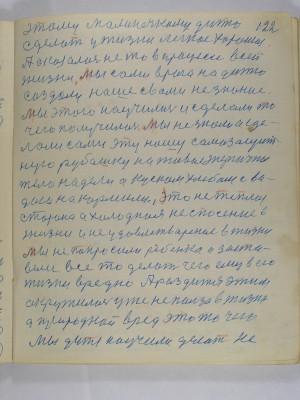 этому маленькому дитю 122
сделать у жизни легкое хорошее
А оказалося не то в процессе всей
жизни, Мы сами врага на дитю
создали наше с вами не знание.
Мы этого научились и сделали то
чего получилося Мы не знали а сде-
лали сами эту нашу самозащит-
ную рубашку на живое энергичное
тело надели а куском хлебом с во-
дою накормили, Это не теплая
сторона а холодная не спасение в
жизни а не удовлетворение в жизни
Мы не попросили ребенка а заста-
вили все то делать чего ему в его
жизни вредно А раз дитя этим
окружился уже не польза в жизни
а природной вред это то чего
Мы дитя научили делать не